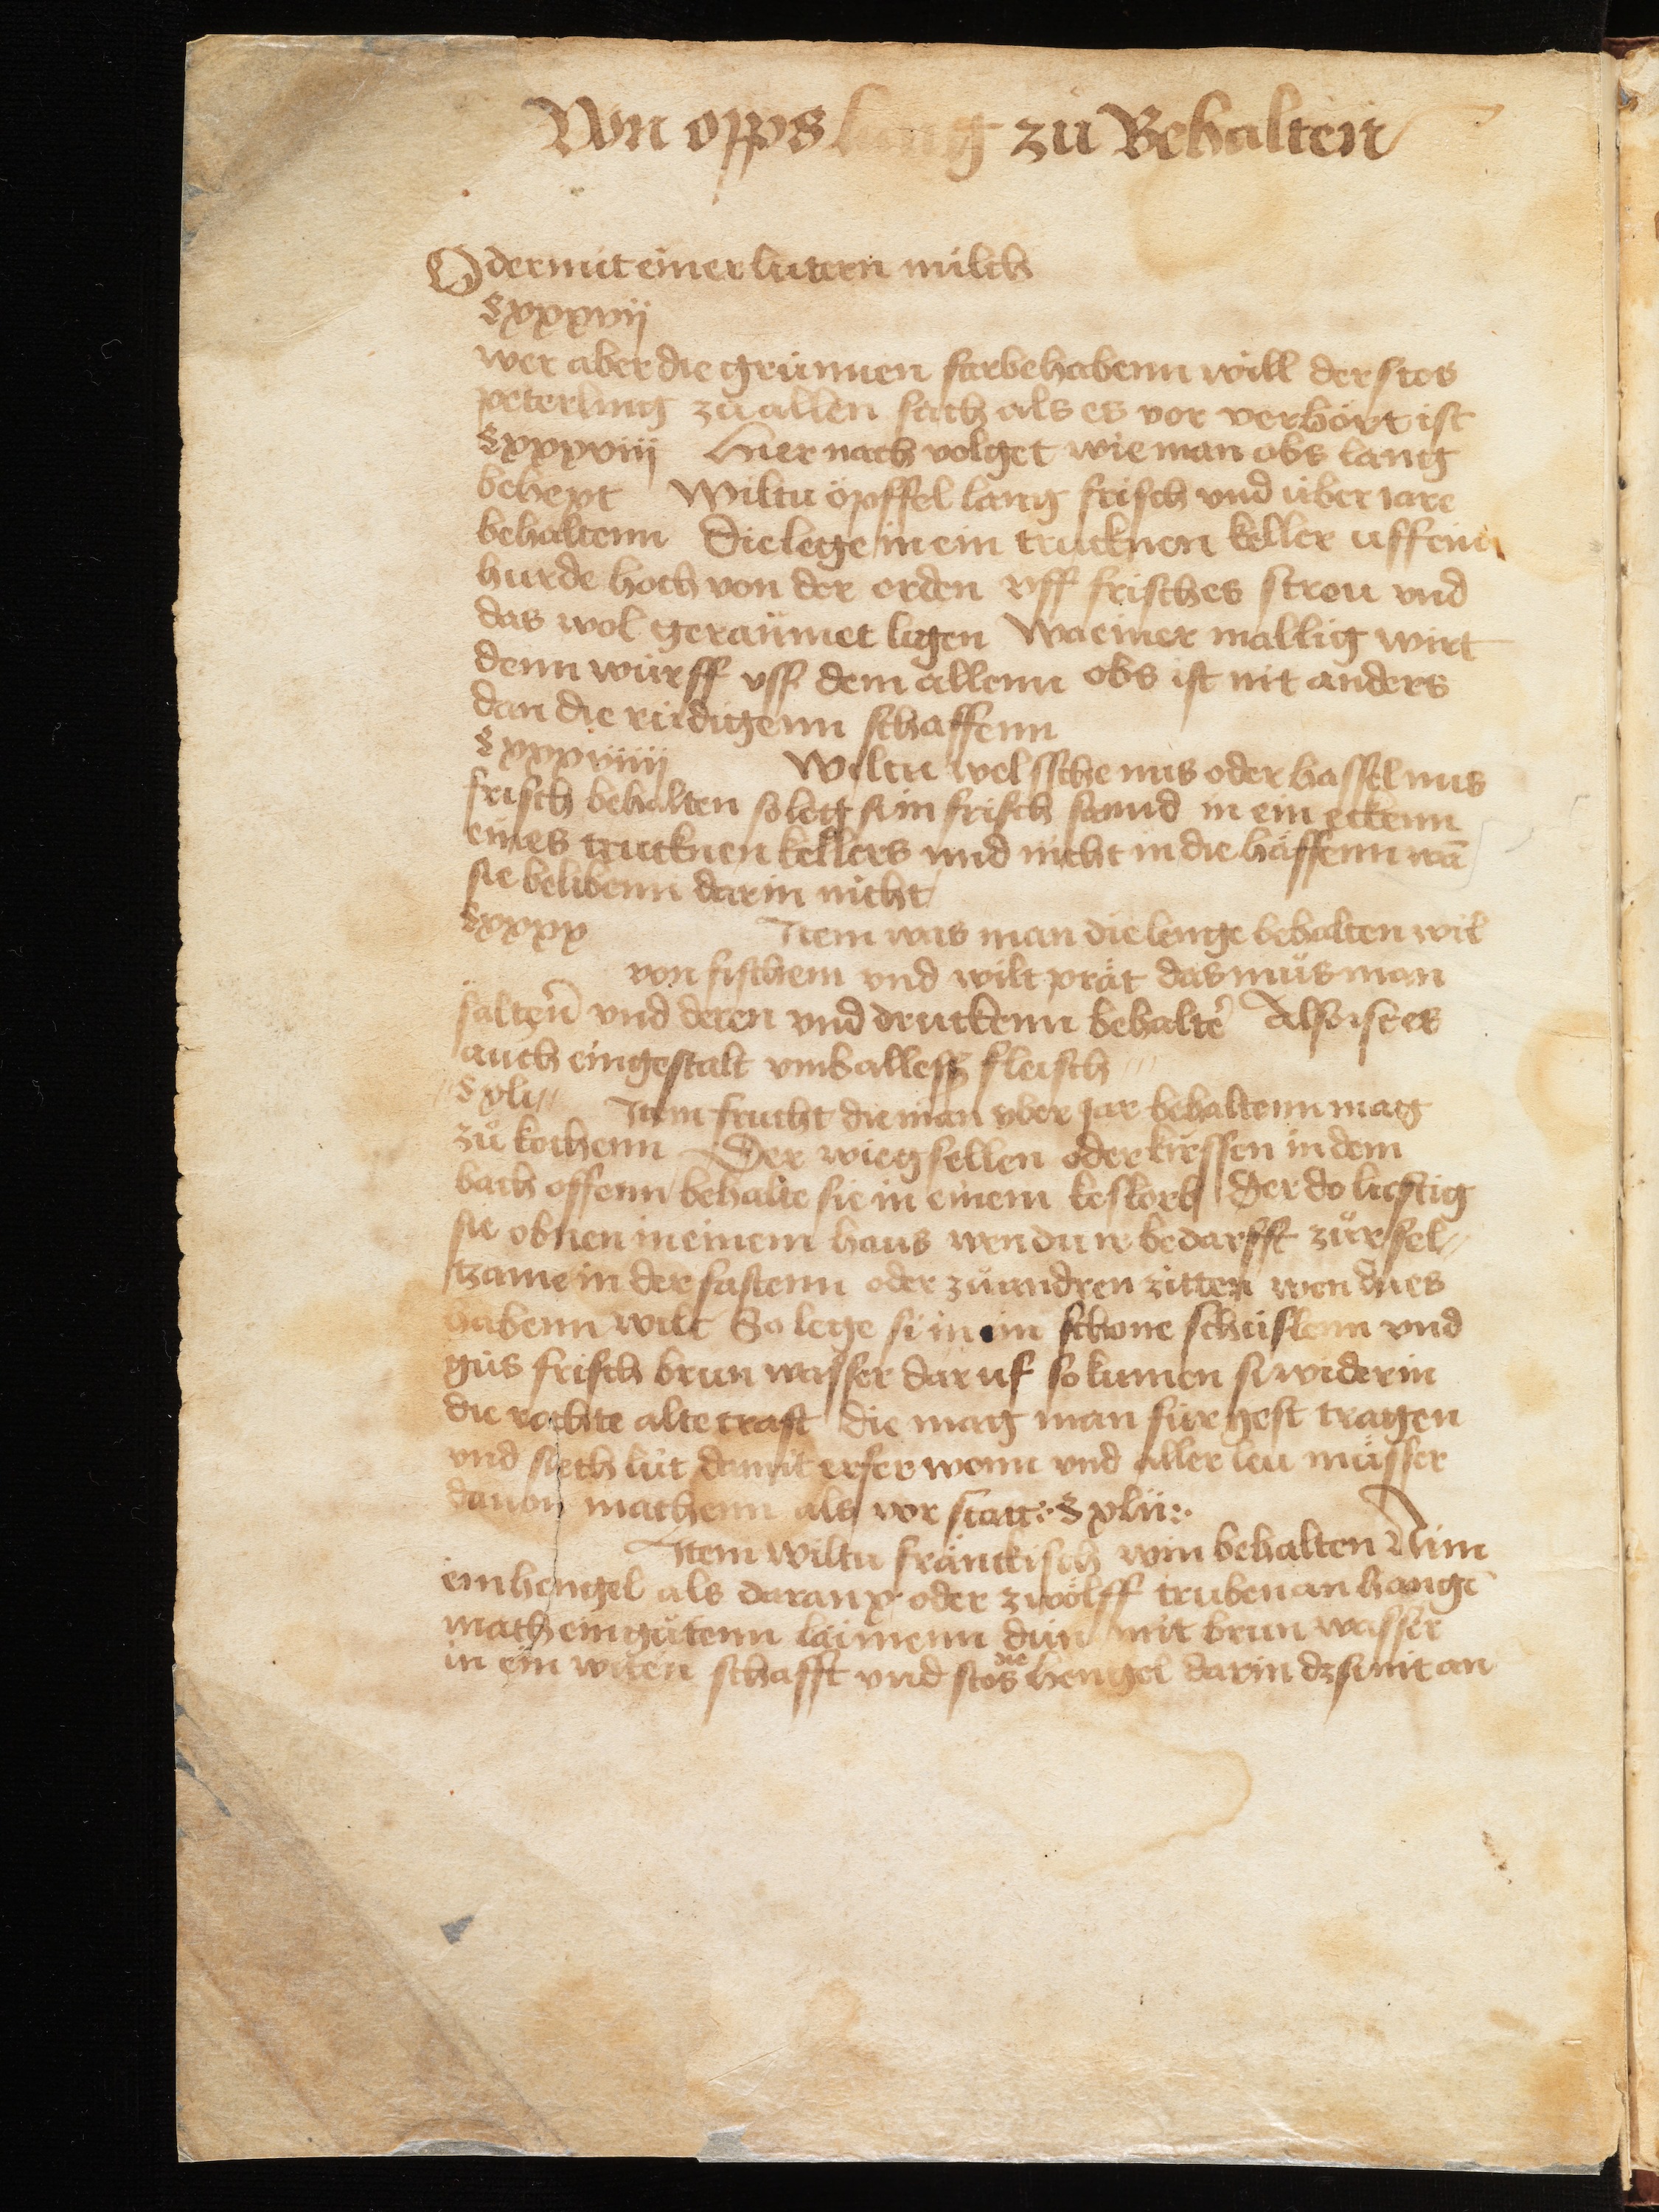 Von opps lang zu Behalten
Oder mit einer lutern milch
§ xxxvij
wer aber die grünnen farbe habenn will der stos
peterling zü allen sach als es vor verhört ist
§ xxxviij Hier nach volget wie man obs lang
behept Wiltu öpffel lang frisch vnd über iare
behaltenn Die lege in ein trucknen keller uff ein
hurde hoch von der erden vff frisches strou vnd
das wol geraümet ligen Wa einer mallig wirt
denn würff vss dem allenn obs ist nit anders
dan die rüdigenn schaffenn
§ xxxviiij Wiltu welssche nus oder hassel nus
frisch behalten so leg si in frisch sannd in ein eckenn
eines trucknen kellers vnd nicht in die häffenn wā
sie belibenn darin nicht
§ xxxx Item was man die lenge behalten wil
von fischem vnd wilt prät das müs man
saltzēn vnd deren vnd druckenn behaltē Also ist es
auch ein gestalt vmb alless fleisch
§ xli Item frucht die man vber jar behaltenn mag
zü kochenn Der wiegsellen oder kirssen in dem
bach offenn behalte sie in einem keskorb Der do luftig
sie obnen in einem haus wen du ir bedarfft zür sel
tzame in der fastenn oder zü andren zitten wen du es
habenn wilt So lege si in ein schone schüslenn vnd
güs frisch brun wasser dar uf so kumen si wider in
die rechte alte craft die mag man für gest tragen
vnd siech lüt damit erferwenn vnd aller leu müsser
dauon machenn als vor statt § xlii
Item wiltu fränckisch win behalten Nim
ein hengel als daran x oder zwölff truben an hangē
mach ein gütenn laimenn dün mit brun wasser
in ein witen schafft vnd stos die hengel darin dz si nit an